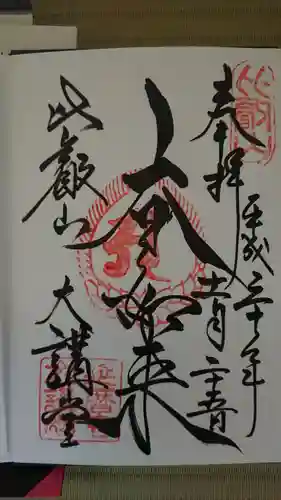 奉拝
平成三十年
十一月二十五日
大日如来
比叡山
大講堂
比叡山